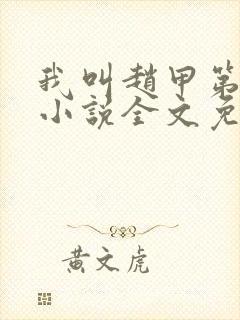 我叫趙甲第
小說全文免
黃文虎